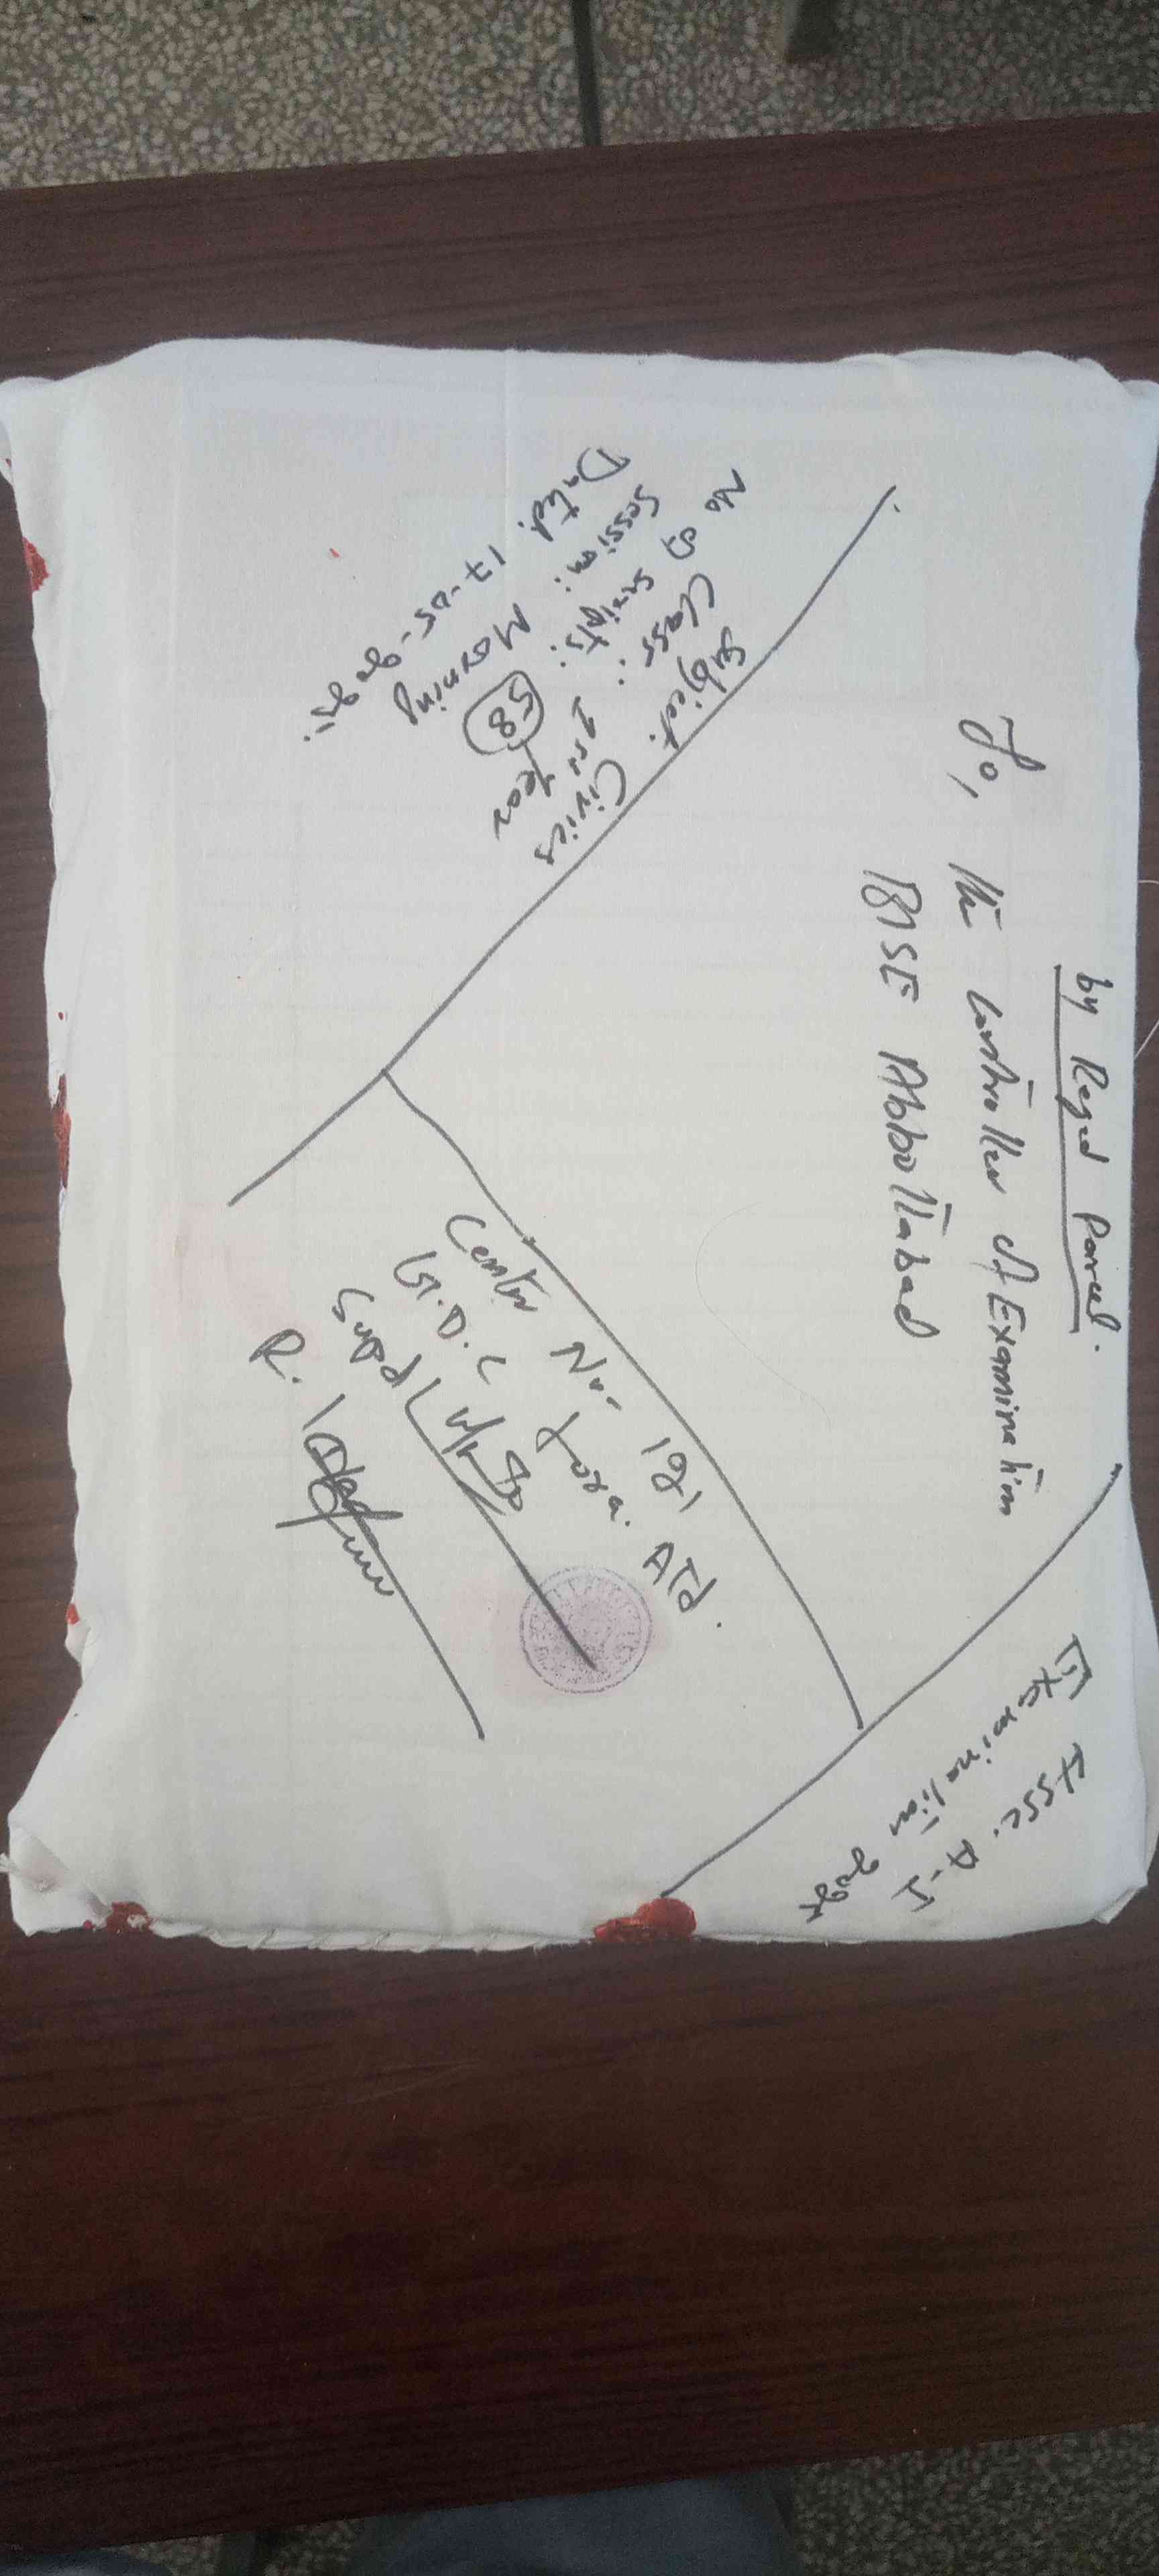 by Regd Parcel.
To,
The Controller of Examination
BISE Abbottabad
Subject. Civics
Class: 1st Year
No of Scripts: 58
Session: Morning
Dated. 17-05-2025.
HSSC. A-I
Examination 2025
Center No. 121
G.D.C Lora. ATD.
Supdt
R.